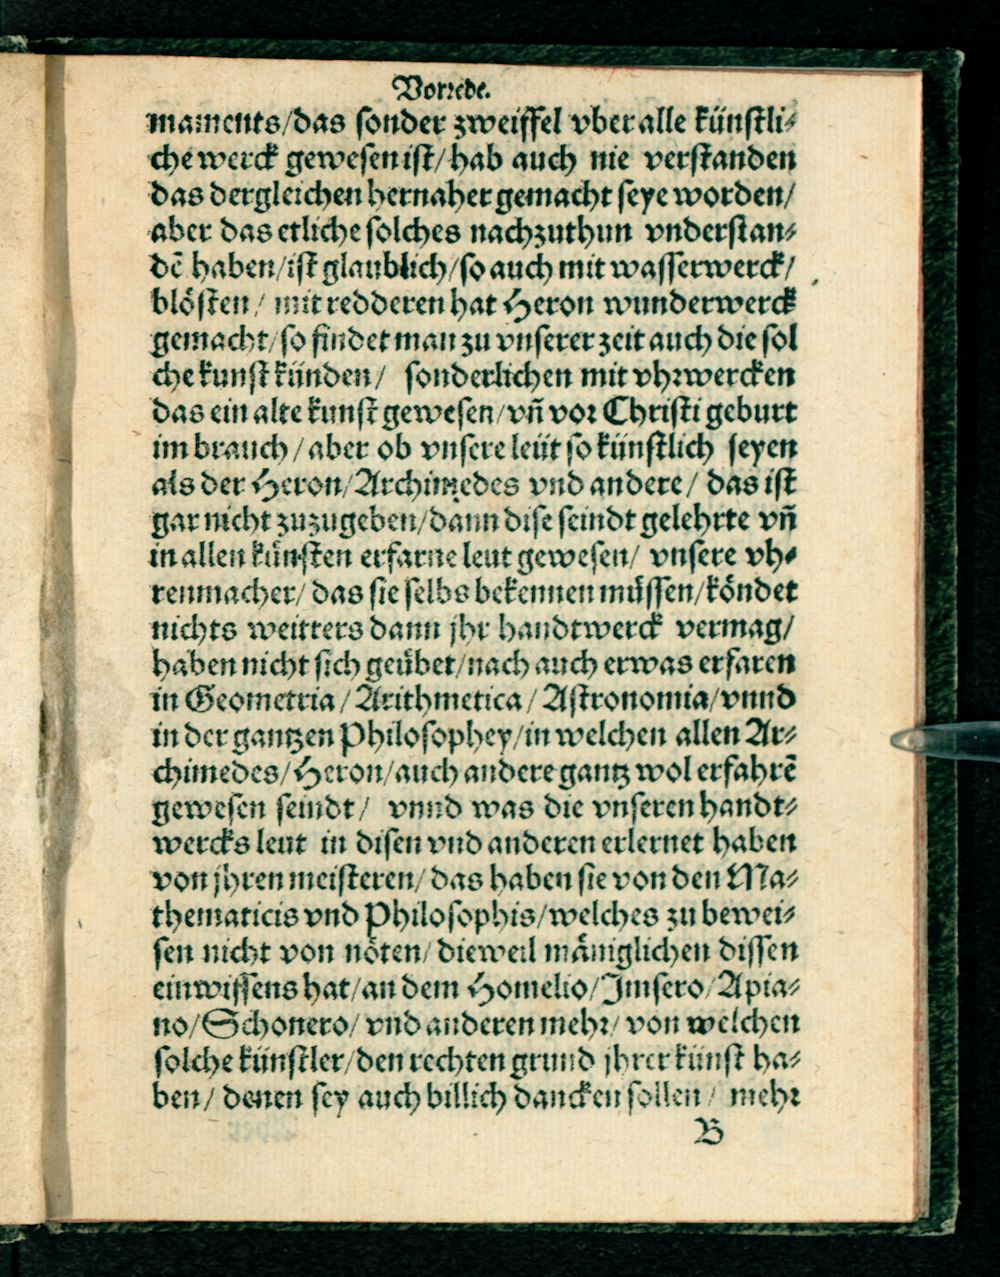 Vorrede.
maments/das sonder zweiffel vber alle künstli⸗
che werck gewesen ist/hab auch nie verstanden
das dergleichen hernaher gemacht seye worden/
aber das etliche solches nachzuthun vnderstan⸗
dē haben/ist glaublich/so auch mit wasserwerck/
blösten/ mit redderen hat Heron wunderwerck
gemacht/so findet man zu vnserer zeit auch die sol
che kunst künden/ sonderlichen mit vhrwercken
das ein alte kunst gewesen/vn̄ vor Christi geburt
im brauch/aber ob vnsere leüt so künstlich seyen
als der Heron/Archimedes vnd andere/ das ist
gar nicht zuzugeben/dann dise seindt gelehrte vn̄
in allen künsten erfarne leut gewesen/ vnsere vh⸗
renmacher/ das sie selbs bekennen müssen/köndet
nichts weitters dann jhr handtwerck vermag/
haben nicht sich geübet/nach auch etwas erfaren
in Geometria/Arithmetica/Astronomia/vnnd
in der gantzen Philosophey/in welchen allen Ar⸗
chimedes/Heron/auch andere gantz wol erfahrē
gewesen seindt/ vnnd was die vnseren handt⸗
wercks leut in disen vnd anderen erlernet haben
von jhren meisteren/das haben sie von den Ma⸗
thematicis vnd Philosophis/welches zu bewei⸗
sen nicht von nöten/dieweil mäniglichen dissen
ein wissens hat/an dem Homelio/Imsero/Apia⸗
no/Schonero/ vnd anderen mehr/ von welchen
solche künstler/den rechten grund jhrer künst ha⸗
ben/ denen sey auch billich dancken sollen/ mehr
B